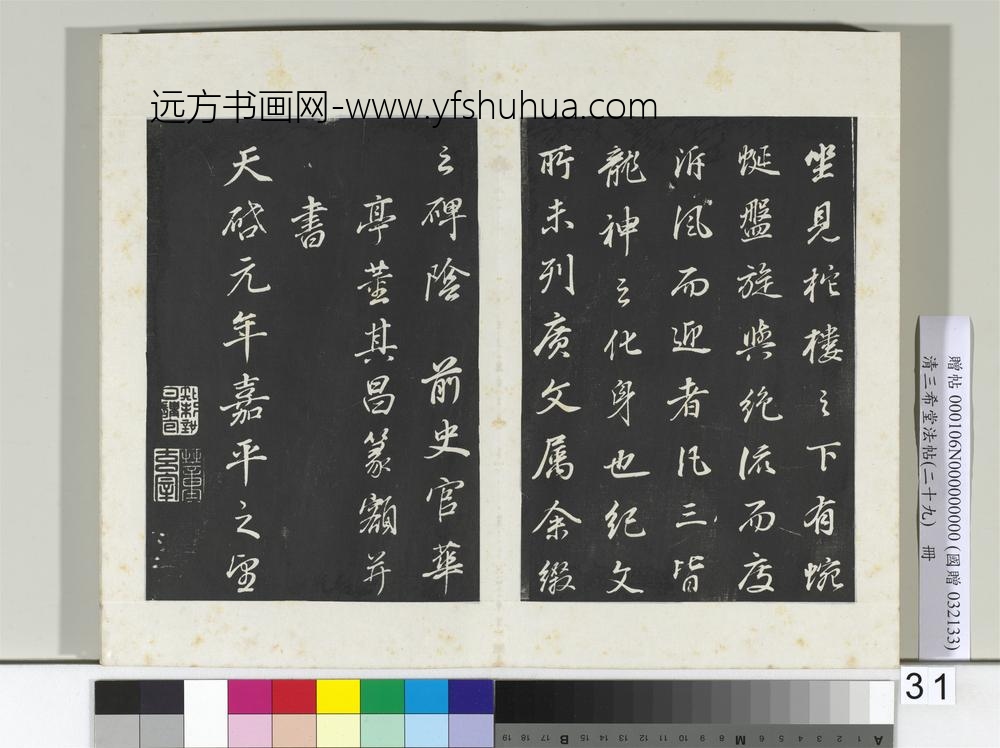 远方书画网-www.yfshuhua.com
坐見柁樓之下有蜿
蜒盤旋與絶流而度
泝風而迎者凡三皆
龍神之化身也紀文
所未列廣文属余綴
之碑陰 前史官華
亭董其昌篆額并
書
天啓元年嘉平之望
贈帖 000106N000000000 (國贈 032133)
清三希堂法帖(二十九) 冊
31
19 18 17 16 15 B 11 10 9 8 M 6 5 4 3 2 1 A